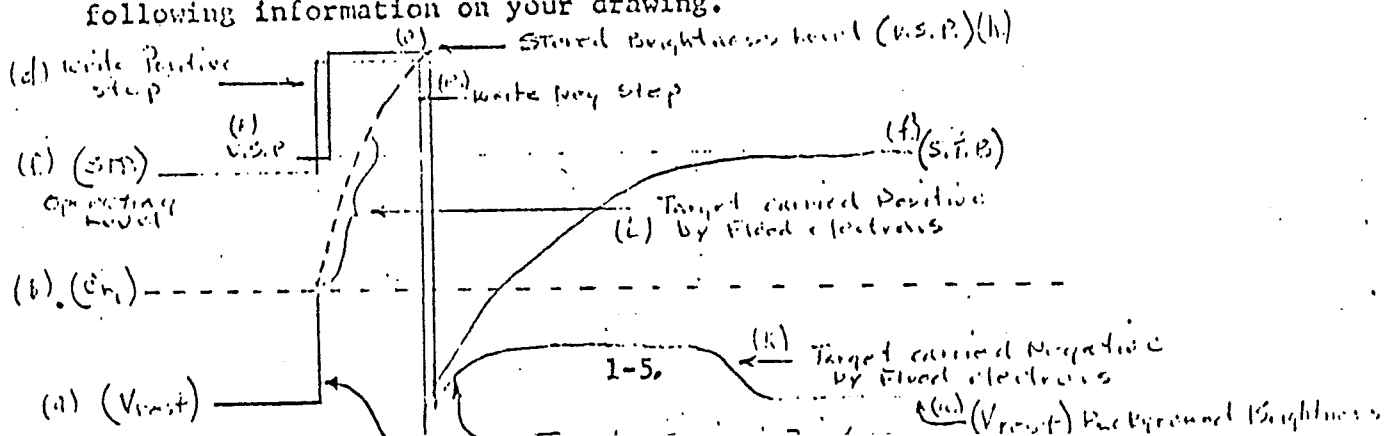 following information on your drawing.
Stored Brightness Level (V.S.P.) (h)
(d) Write Positive
step
Write Neg Step
V.S.P
(S.T.B)
Operating
Level
Target carried Positive
(i) by Flood electrons
(b).
(k) Target carried Negative
by Flood electrons
1-5.
(a) (Vrest)
(Vrest) Background Brightness